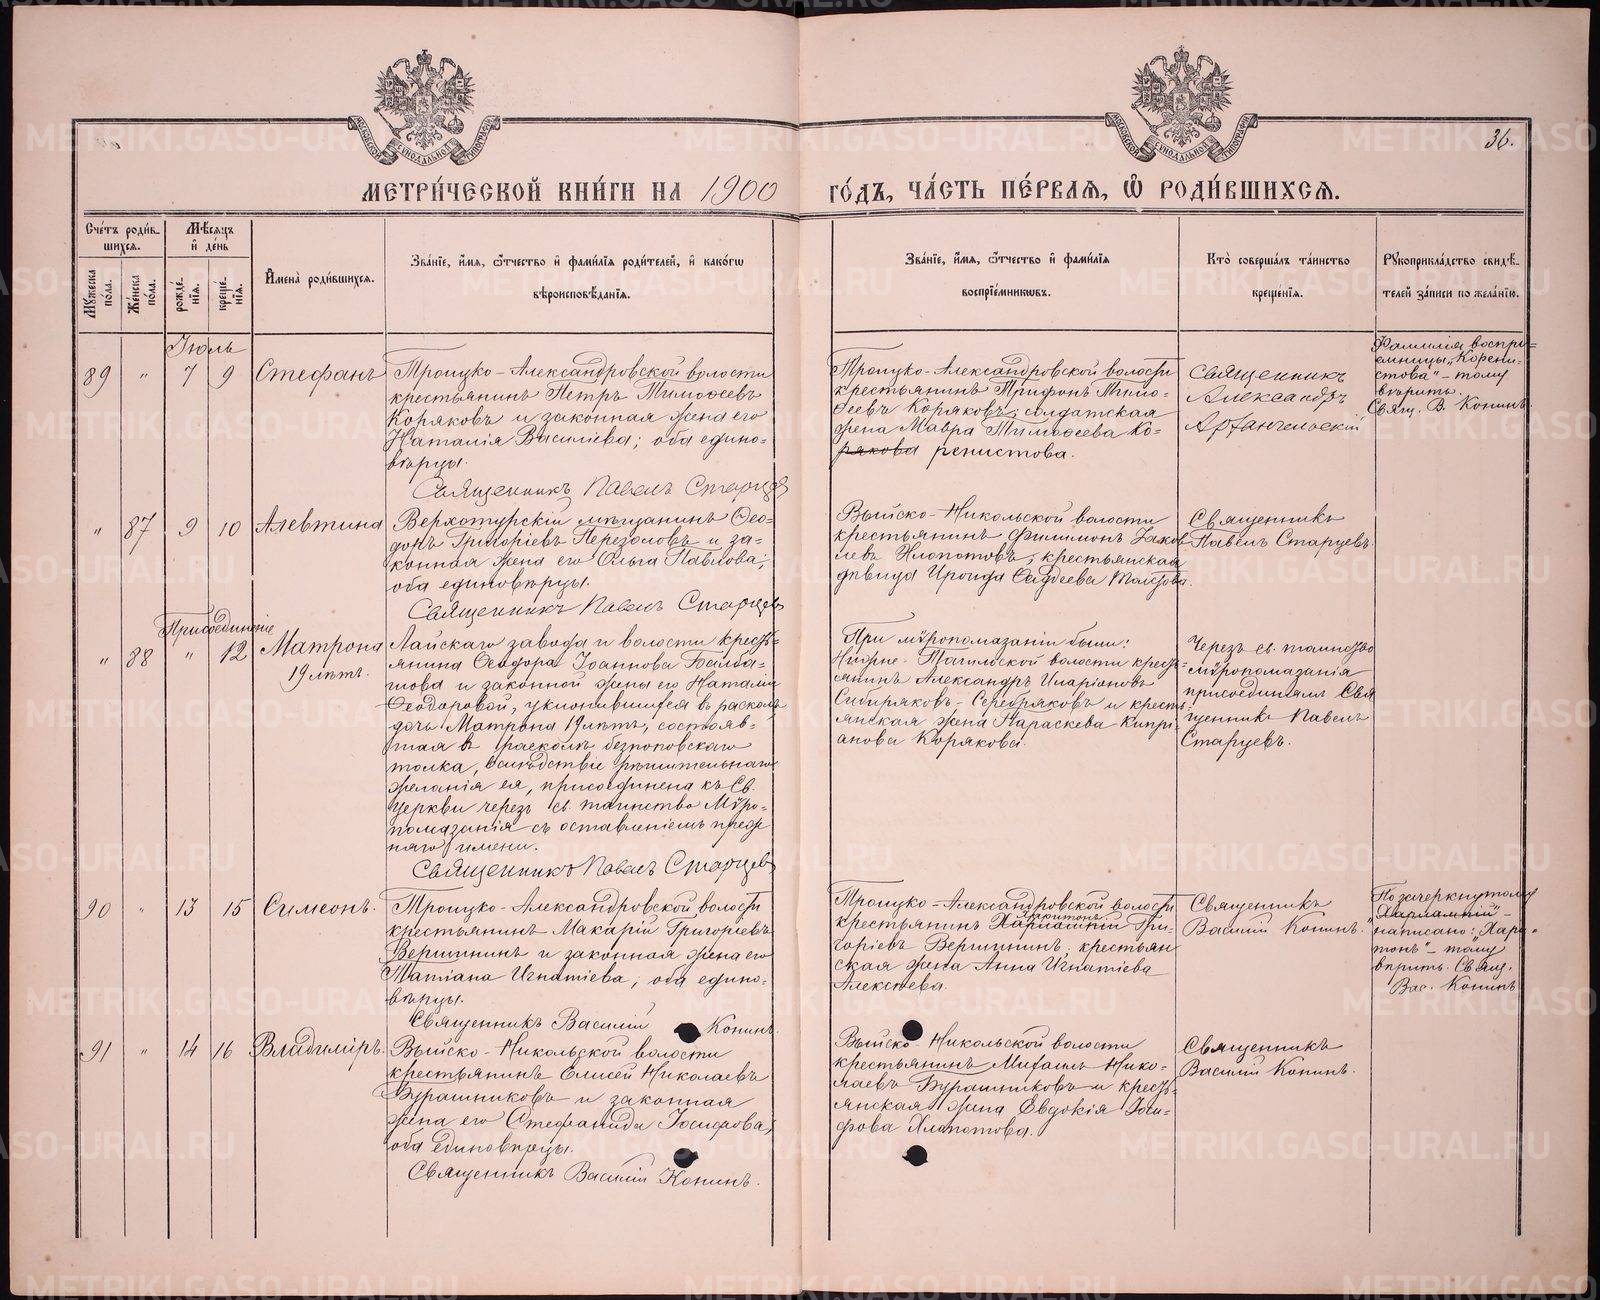 МОСКОВСКОЙ СѴНОДАЛЬНОЙ ТИПОГРАФІИ
МОСКОВСКОЙ СѴНОДАЛЬНОЙ ТИПОГРАФІИ
36.
МЕТРИ́ЧЕСКОЙ КНИ́ГИ НА 1900 ГО́ДЪ, ЧА́СТЬ ПЕ́РВАЯ, Ѡ҆ РОДИ́ВШИХСЯ.
Сче́тъ роди́вшихся.
Мꙋ́жеска по́ла.
Же́нска по́ла.
Мѣ́сяцъ и҆ де́нь
рожде́нїя.
креще́нїя.
И҆мена̀ роди́вшихся.
Зва́нїе, и҆́мя, ѻ҆́тчество и҆ фами́лїя роди́телей, и҆ како́гѡ
вѣроисповѣ́данїя.
Зва́нїе, и҆́мя, ѻ҆́тчество и҆ фами́лїя
воспрїе́мникѡвъ.
Кто̀ соверша́лъ та́инство
креще́нїя.
Рꙋкоприкла́дство свидѣ́телей за́писи по жела́нїю.
Іюль
89 " 7 9 Стефанъ
Троицко-Александровской волости
крестьянинъ Петръ Тимоѳеевъ
Коряковъ и законная жена его
Наталія Василіева; оба едино-
вѣрцы.
Священникъ Павелъ Старцев
Троицко-Александровской волости
крестьянинъ Трифонъ Тимо-
ѳеевъ Коряковъ; солдатская
жена Мавра Тимоѳеева Ко-
рякова ренистова.
Священникъ
Александръ
Архангельскій
Фамилія воспрі-
емницы "Корени-
стова" - тому
вѣрить.
Свящ. В. Конинъ.
" 87 9 10 Алевтина
Верхотурскій мѣщанинъ Ѳео-
донъ Григоріевъ Перезоловъ и за-
конная жена его Ольга Павлова;
оба единовѣрцы.
Священникъ Павелъ Старцевъ
Выйско-Никольской волости
крестьянинъ Филимонъ Іаков-
левъ Хлопотовъ; крестьянская
дѣвица Ироида Ѳаддеева
Священникъ
Павелъ Старцевъ.
Присоединеніе
" 88 " 12 Матрона
19 лѣтъ.
Лайскаго завода и волости кресть-
янина Ѳеодора Іоаннова Балба-
шова и законной жены его Наталіи
Ѳеодоровой, уклонившихся въ расколъ
дочь Матрона 19 лѣтъ, состояв-
шая въ расколѣ безпоповскаго
толка, вслѣдствіе рѣшительнаго
желанія ея, присоединена къ Св.
церкви черезъ св. таинство Мѵро-
помазанія съ оставленіемъ преж-
няго имени.
Священникъ Павелъ Старцевъ
При мѵропомазаніи были:
Нижне-Тагильской волости кресть-
янинъ Александръ Иларіоновъ
Сибиряковъ-Серебряковъ и кресть-
янская жена Параскева Кипрі-
анова Корякова.
Черезъ св. таинство
мѵропомазанія
присоединялъ Свя-
щенникъ Павелъ
Старцевъ.
90 " 13 15 Симеонъ.
Троицко-Александровской волости
крестьянинъ Макарій Григоріевъ
Вершининъ и законная жена его
Татіана Игнатіева; оба едино-
вѣрцы.
Священникъ Василій Конинъ
Троицко-Александровской волости
Харитонъ
крестьянинъ Харлампій Гри-
горіевъ Вершининъ; крестьян-
ская жена Анна Игнатіева
Алексѣева.
Священникъ
Василій Конинъ.
По зачеркнутому
"Харлампій" -
написано: "Хари-
тонъ" - тому
вѣрить. Свящ.
Вас. Конинъ
91 " 14 16 Владиміръ.
Выйско-Никольской волости
крестьянинъ Елисей Николаевъ
Бурашниковъ и законная
жена его Стефанида Іосифова;
оба единовѣрцы.
Священникъ Василій Конинъ.
Выйско-Никольской волости
крестьянинъ Михаилъ Нико-
лаевъ Бурашниковъ и кресть-
янская жена Евдокія Іоси-
фова Хлопотова.
Священникъ
Василій Конинъ.
METRIKI.GASO-URAL.RU